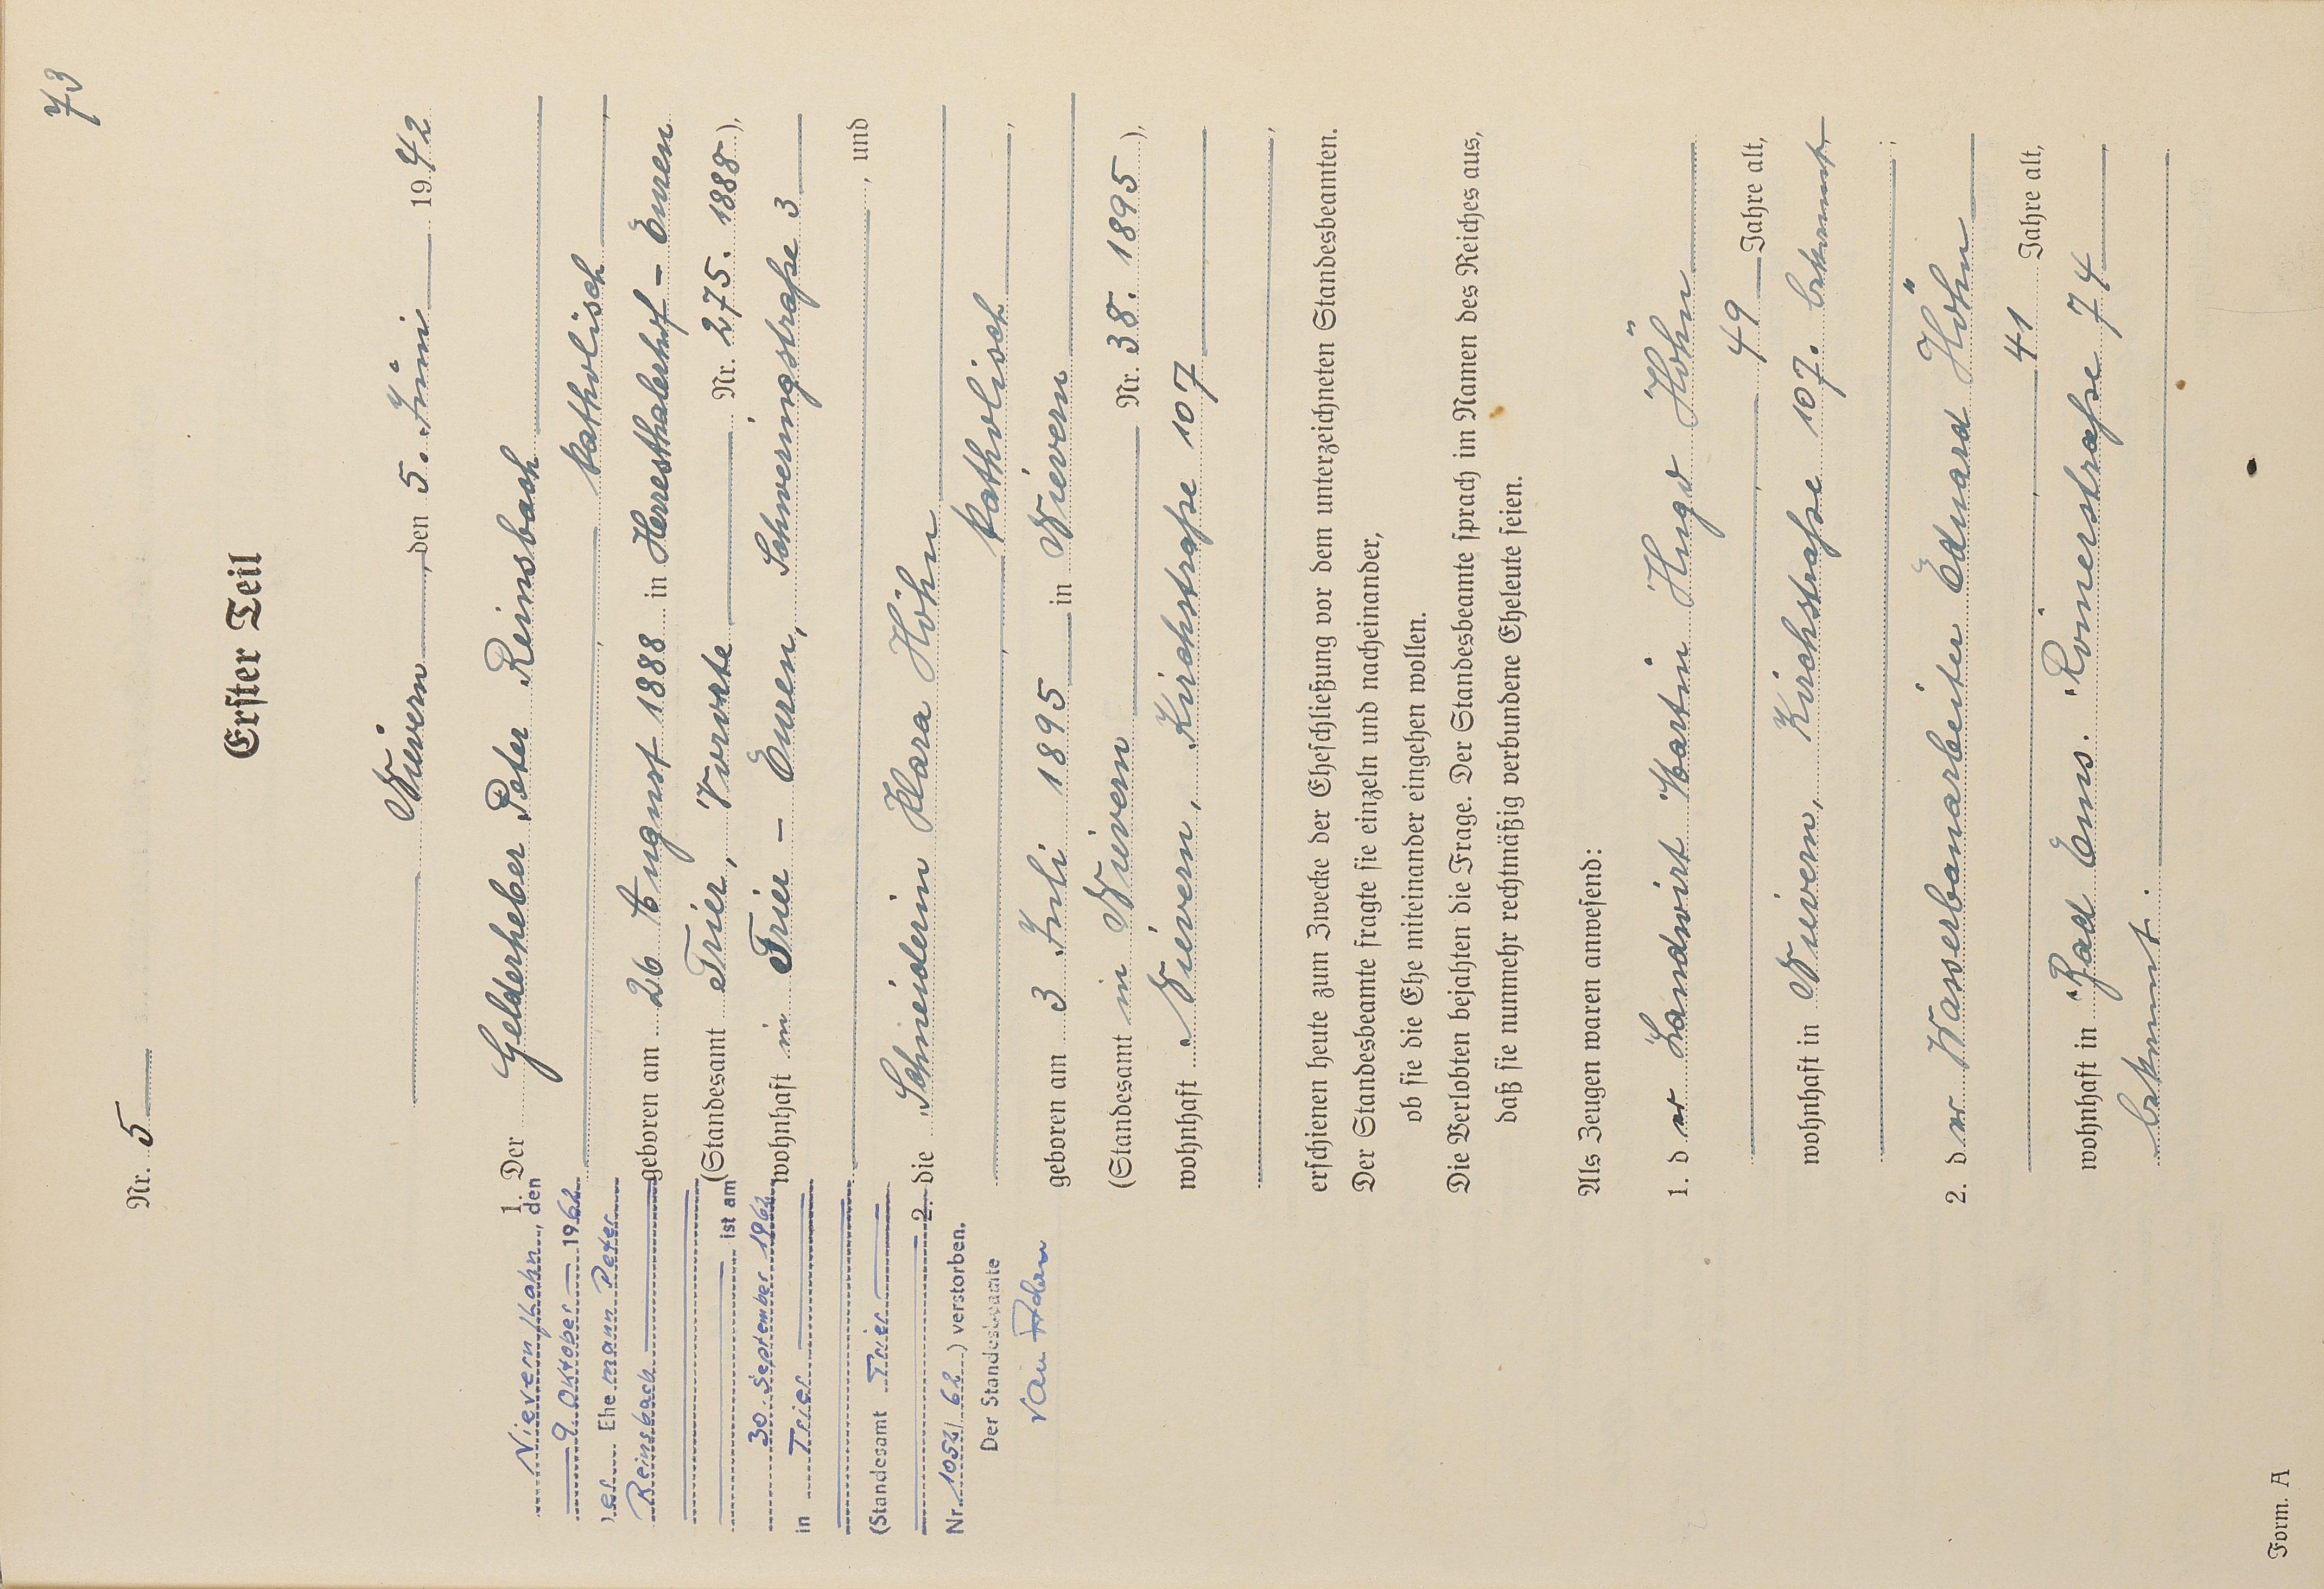 73
Nr. 5
Erster Teil
Nievern, den 5. Juni 1942
1. Der Gelderheber Peter Reinsbach
, katholisch,
geboren am 26 August 1888 in Herresthalerhof - Euren
(Standesamt Trier, Vororte Nr. 275. 1888),
wohnhaft in Trier - Euren, Schweringstraße 3
, und
2. die Schneiderin Klara Höhn
, katholisch,
geboren am 3 Juli 1895 in Nievern
(Standesamt in Nievern Nr. 38. 1895),
wohnhaft Nievern, Kirchstraße 107
,
erschienen heute zum Zwecke der Eheschließung vor dem unterzeichneten Standesbeamten.
Der Standesbeamte fragte sie einzeln und nacheinander,
ob sie die Ehe miteinander eingehen wollen.
Die Verlobten bejahten die Frage. Der Standesbeamte sprach im Namen des Reiches aus,
daß sie nunmehr rechtmäßig verbundene Eheleute seien.
Als Zeugen waren anwesend:
1. der Landwirt Martin Hugo Höhn
, 49 Jahre alt,
wohnhaft in Nievern, Kirchstraße 107. bekannt
;
2. der Wasserbauarbeiter Eduard Höhn
, 41 Jahre alt,
wohnhaft in Bad Ems. Römerstraße 74,
bekannt.
Nievern/Lahn, den
9. Oktober 1962
Der Ehemann Peter
Reinsbach
ist am
30. September 1962
in Trier
(Standesamt Trier
Nr. 1052/62) verstorben.
Der Standesbeamte
Form. A